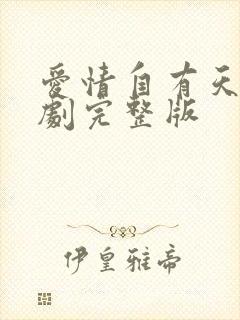 愛情自有天
劇完整版
伊皇雅帝